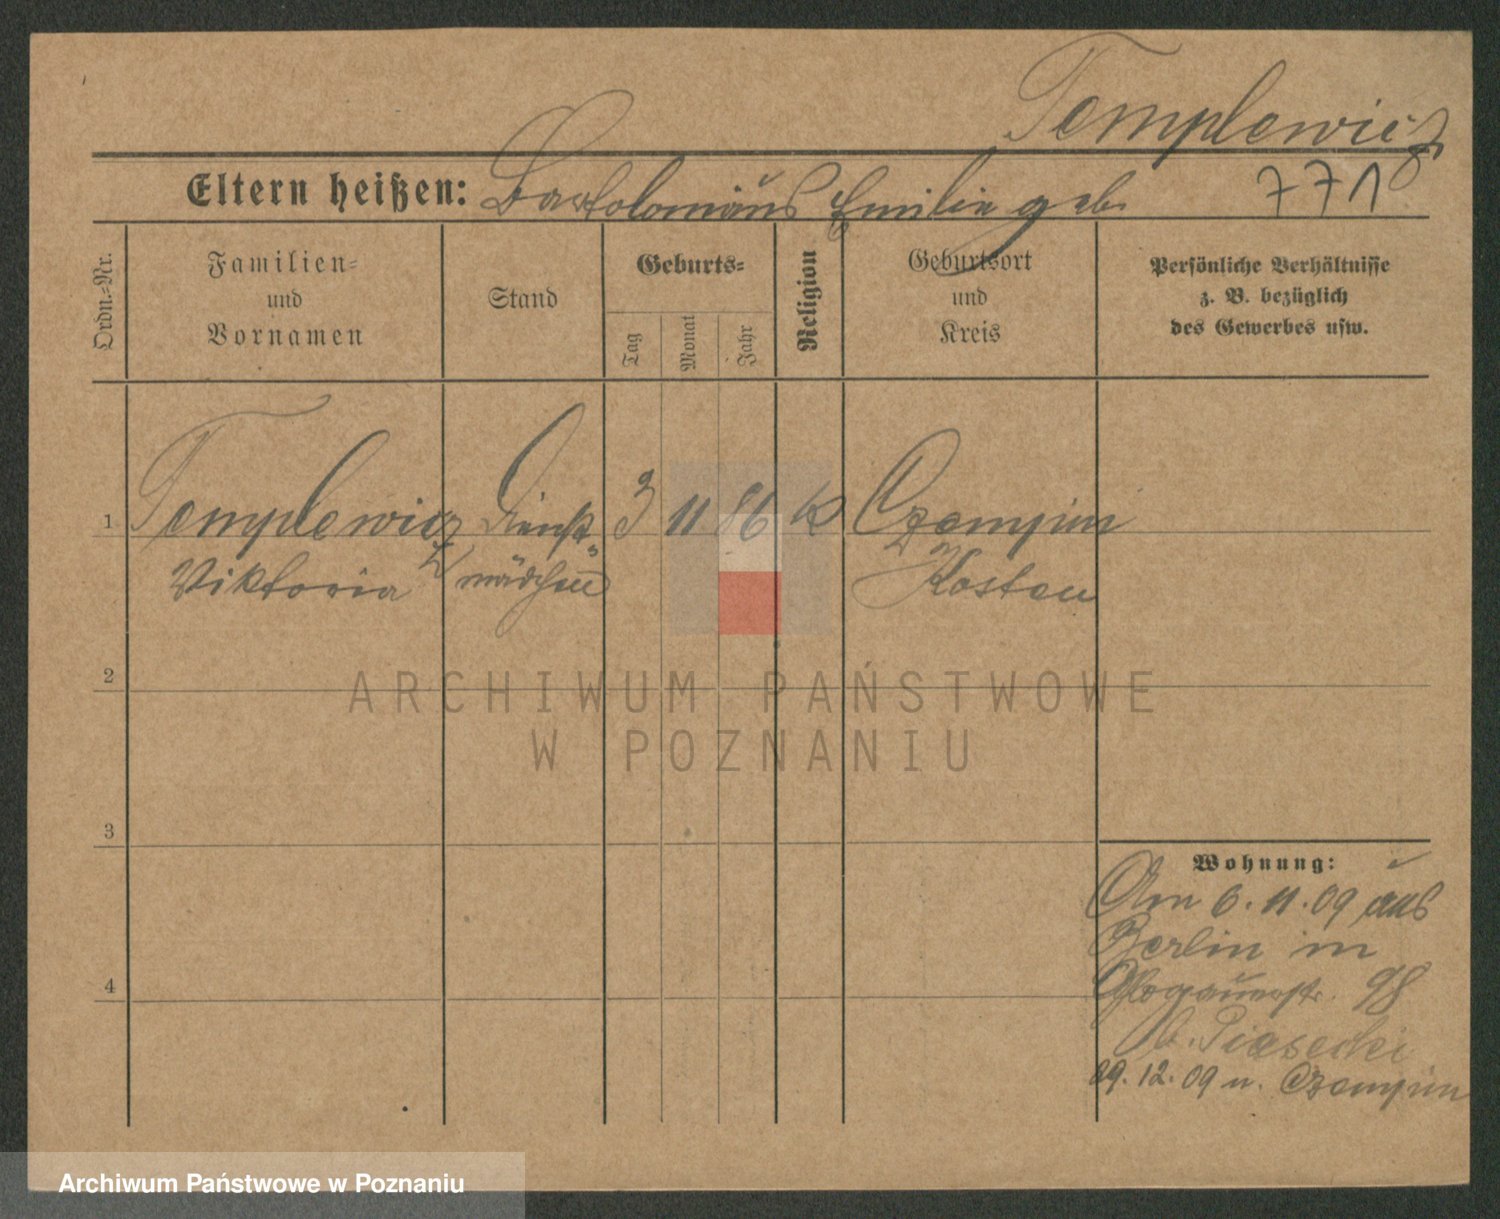 Templewicz
Eltern heißen: Bartolomäus Emilie geb.
771
Ordn.=Nr.
Familien=
und
Vornamen
Stand
Geburts=
Tag
Monat
Jahr
Religion
Geburtsort
und
Kreis
Persönliche Verhältnisse
z. B. bezüglich
des Gewerbes usw.
1 Templewicz Dienst= 3 11 86 K Czempin
Viktoria mädchen Kosten
2
3
4
Wohnung:
Am 6.11.09 aus
Berlin in
Glogauerstr. 98
b. Piasecki
29.12.09 n. Czempin
ARCHIWUM PAŃSTWOWE
W POZNANIU
Archiwum Państwowe w Poznaniu